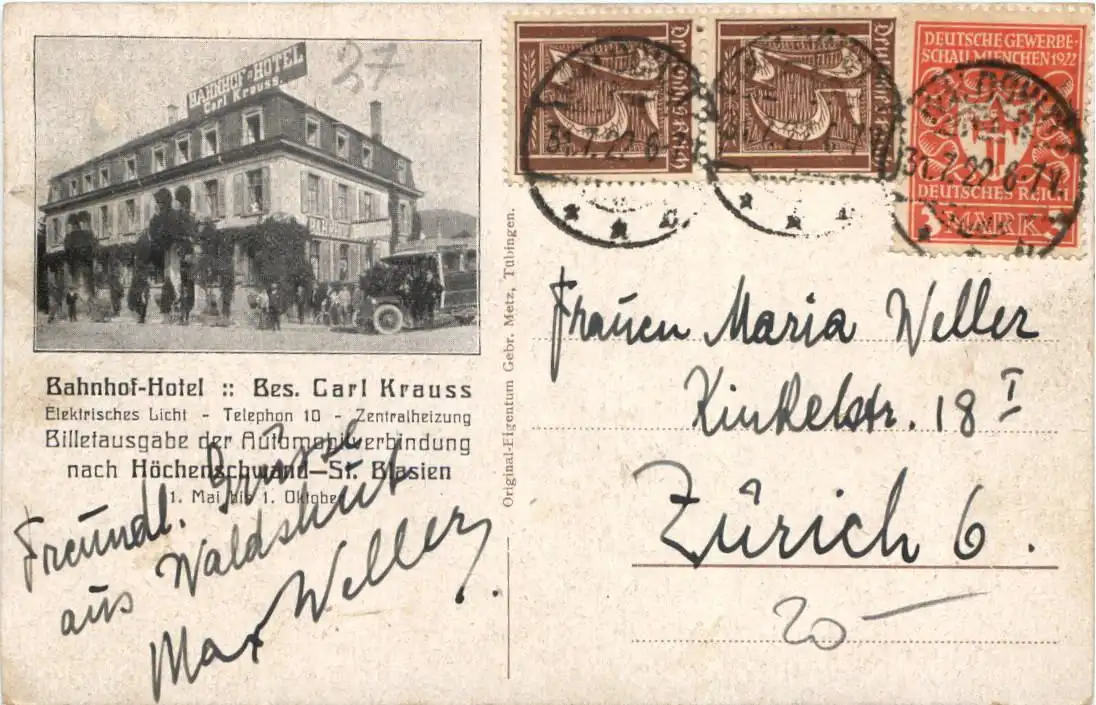 BAHNHOF-HOTEL
Carl Krauss.
37
Bahnhof-Hotel :: Bes. Carl Krauss
Elektrisches Licht - Telephon 10 - Zentralheizung
Billetausgabe der Automobilverbindung
nach Höchenschwand—St. Blasien
1. Mai bis 1. Oktober
Freundl. Grüsse
aus Waldshut
Max Weller.
Original-Eigentum Gebr. Metz, Tübingen.
75
Deutsches Reich
75
Deutsches Reich
DEUTSCHE GEWERBE-
SCHAU MUENCHEN 1922
DEUTSCHES REICH
3 MARK
31.7.22 6-7N
31.7.22 6-7N
31.7.22 6-7N
Frauen Maria Weller
Kinkelstr. 18 I
Zürich 6.
20 —